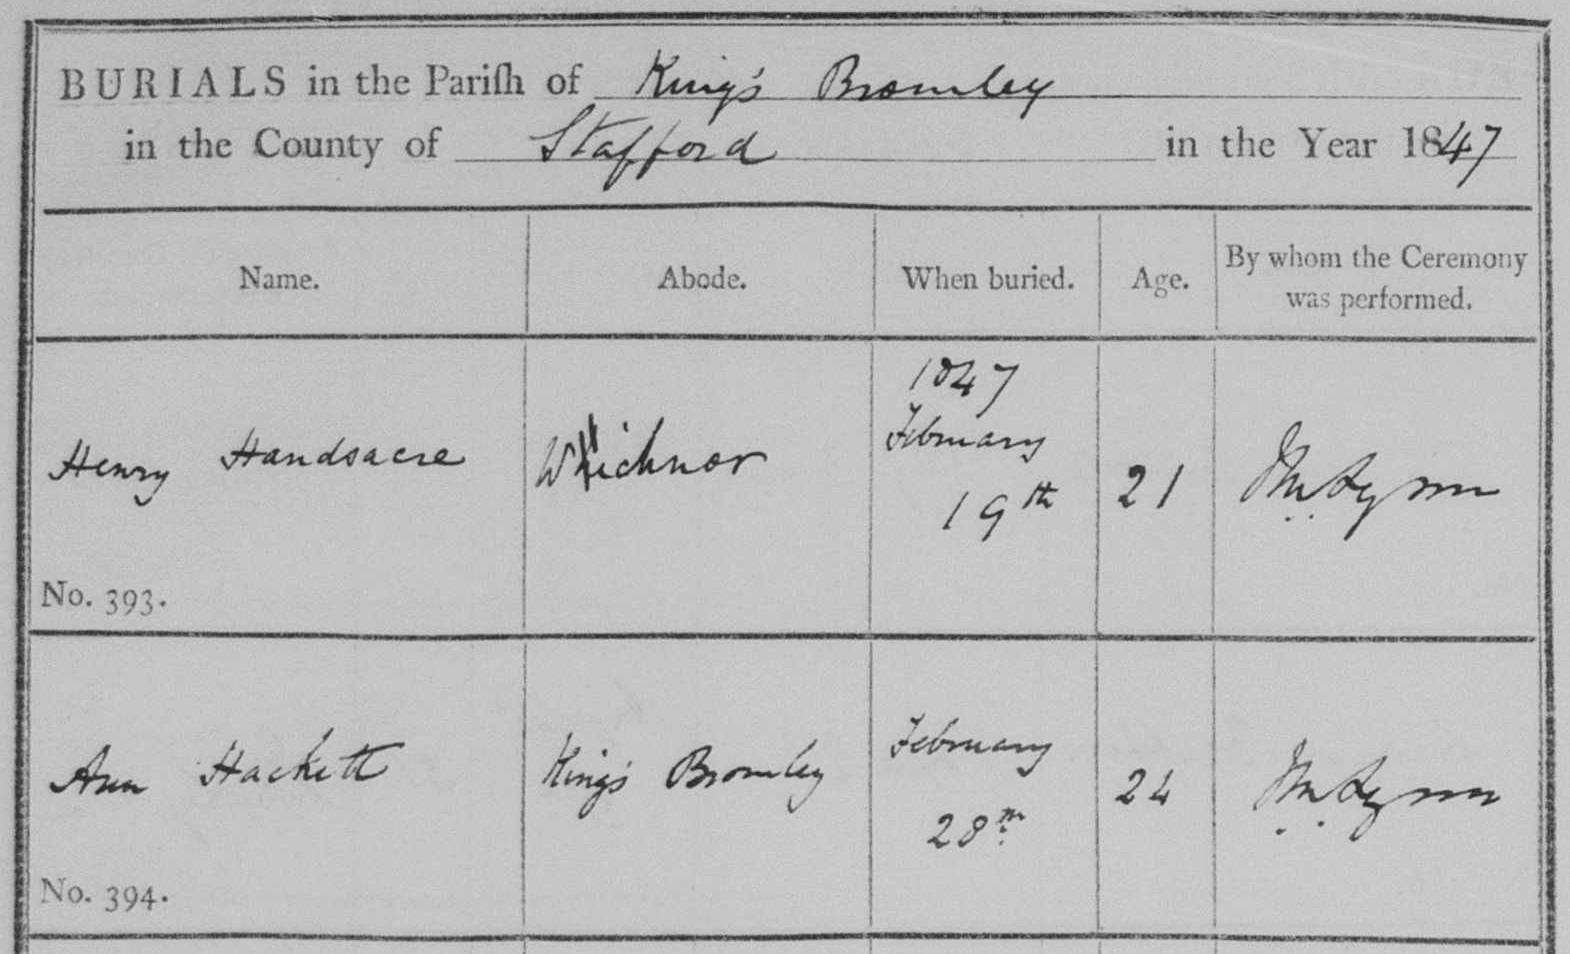 BURIALS in the Pariſh of King's Bromley
in the County of Stafford in the Year 1847
Name. Abode. When buried. Age. By whom the Ceremony was performed.
Henry Handsacre Whichnor 1847 February 19th 21
No. 393.
Ann Hackett King's Bromley February 28th 24
No. 394.